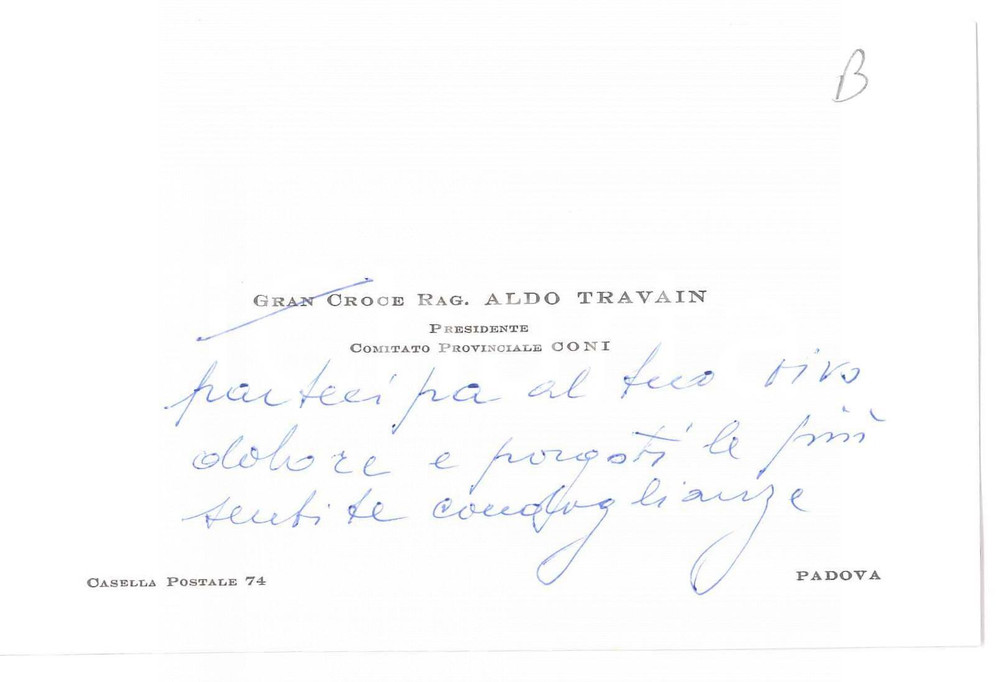 B
GRAN CROCE RAG. ALDO TRAVAIN
PRESIDENTE
COMITATO PROVINCIALE CONI
partecipa al tuo vivo
dolore e porgoti le più
sentite condoglianze
CASELLA POSTALE 74
PADOVA